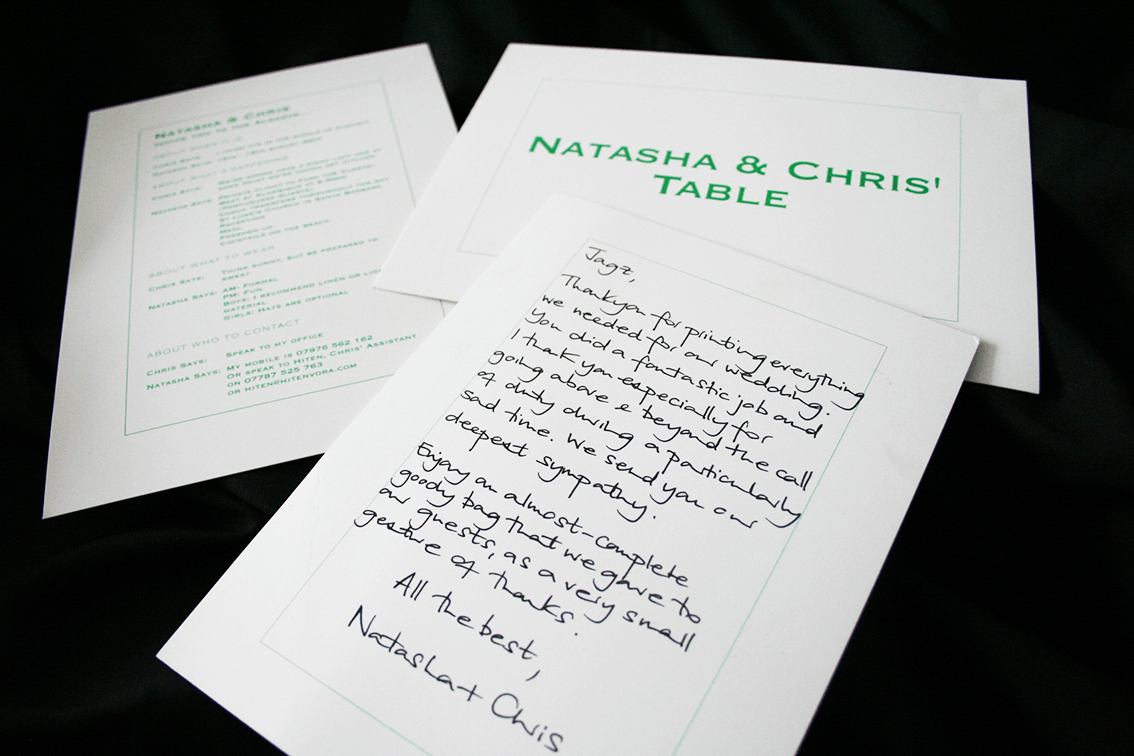 NATASHA & CHRIS
ABOUT WHEN IT IS
ABOUT WHAT'S HAPPENING
CHRIS SAYS:
NATASHA SAYS: PRIVATE FLIGHT TO FARO (UK GUESTS)
(PORTUGUESE GUESTS)
COACH TRANSFERS THROUGHOUT THE DAY
RECEPTION
MEAL
FRESHEN UP
COCKTAILS ON THE BEACH
ABOUT WHAT TO WEAR
CHRIS SAYS: THINK SUNNY, BUT BE PREPARED TO
SWEAT
NATASHA SAYS: AM: FORMAL
PM: FUN
BOYS: I RECOMMEND LINEN OR
MATERIAL
GIRLS: HATS ARE OPTIONAL
ABOUT WHO TO CONTACT
CHRIS SAYS: SPEAK TO MY OFFICE
NATASHA SAYS: MY MOBILE IS 07976 562 162
OR SPEAK TO HITEN, CHRIS' ASSISTANT
ON 07787 525 763
OR HITEN@HITENVORA.COM
NATASHA & CHRIS'
TABLE
Jagz,
Thankyou for printing everything
we needed for our wedding.
You did a fantastic job and
I thank you especially for
going above & beyond the call
of duty during a particularly
sad time. We send you our
deepest sympathy.
Enjoy an almost-complete
goody bag that we gave to
our guests, as a very small
gesture of thanks.
All the best,
Natasha + Chris